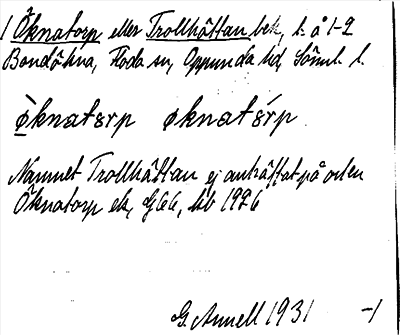 1 Öknatorp eller Trollhättan bek, l. å 1-2
Bondökna, Floda sn, Oppunda hd, Söml. l.
ø̀knatɷrp øknatɷ́rp
Namnet Trollhättan ej anträffat på orten
Öknatorp ek, G66, hb 1926
G. Annell 1931 -1